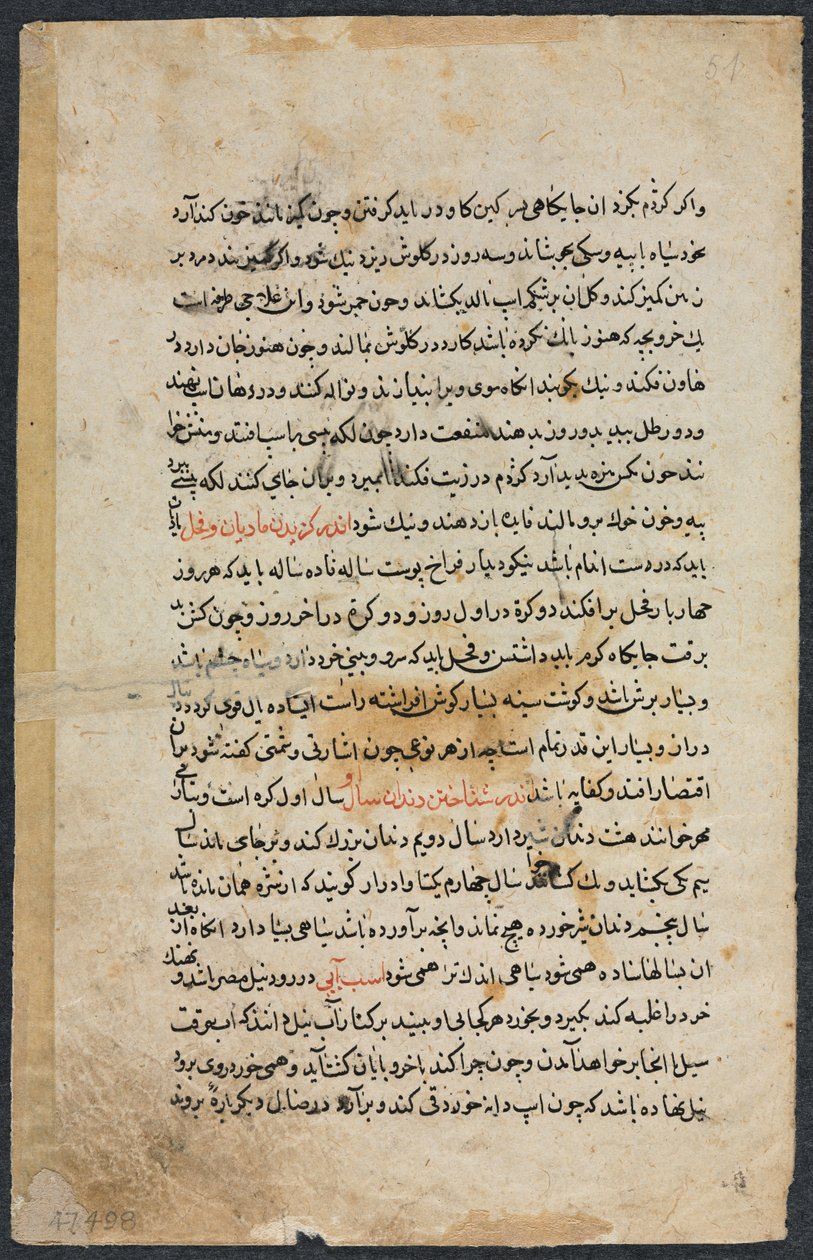 51
واکر کژدم بکزد ان جایکاهی بر کین کاو در باید کرفتن وچون کیز مانند خون کند آرد
بخود سیاه با پیه وسکی بجوشاند وسه روز در کلوش ریزد نیك شود واکر کمیز بند دمرد بر
زمین کمیز کند وکل ان بر شکم اسپ مالد بکشاند وچون خمر شود واین علاجی طرفه است
یك خروبچه که هنوز بانك نکرده باشد کارد در کلوش نمالند وچون هنوز جان دارد در
هاون فکند ونیك بکوبند انکاه موی ویرا بنیازند ونواله کنند ودر دهان اسپ نهند
ودو رطل بدو روز بدهند منفعت دارد چون لکه پیسی بر اسپ افتد
چون مکس مزه پدید آرد کژدم در زیت فکند تا بمیرد وبران جای کنند لکه پیسی ببرد
پیه وخون خوك برو مالند فایده بازدهند ونیك شود اندر کزیدن مادیان وفحل مادیان
باید که درست اندام باشد نیکو دیدار فراخ پوست ساله تا ده ساله باید که هر روز
چهار بار فحل برافکند دو کرة در اول روز ودو کرة در آخر روز وچون کشن
برقت جایکاه کرم باید داشتن وفحل باید که سرو وبینی خرد دارد وسیاه چشم باشد
وبسیار برش باشد وکوشت سینه بسیار کوش افراشته راست ایستاده یال قوی کرد
دراز وبسیار این قدر تمام است چه از هر نوعی چون اشارتی وشمتی کفته شود بران
اقتصار افتد وکفایه باشد اندر شناختن دندان سال و سال اول کره است وبتازی
مهر خوانند هشت دندان شیر دارد سال دویم دندان بزرك کند وبر جای ماند سال
سیم یکی بکشاید ویك سال چهارم یکتا وادوار کویند که از شزه همان مانده باشد
سال پنجم دندان شیر خورده هیچ نماند وانچه برآورده باشد سیاهی بسیار دارد انکاه از بعد
ان بسالها ساده همی شود سیاهی اندك تر همی شود اسب آبی در رود نیل مصر باشد ونهنك
خرد را غلبه کند بکیرد وبخورد هر کجا پی او بینند بر کنار آب نیل دانند که اب بوقت
سیل تا انجا بر خواهد آمدن وچون چرا کند باخر وبایان کشت آید وهمی خورد روی برود
نیل نهاده باشد که چون اسپ دانه خورد قی کند وبرآرد در رضال دیکر باره بروند
47498